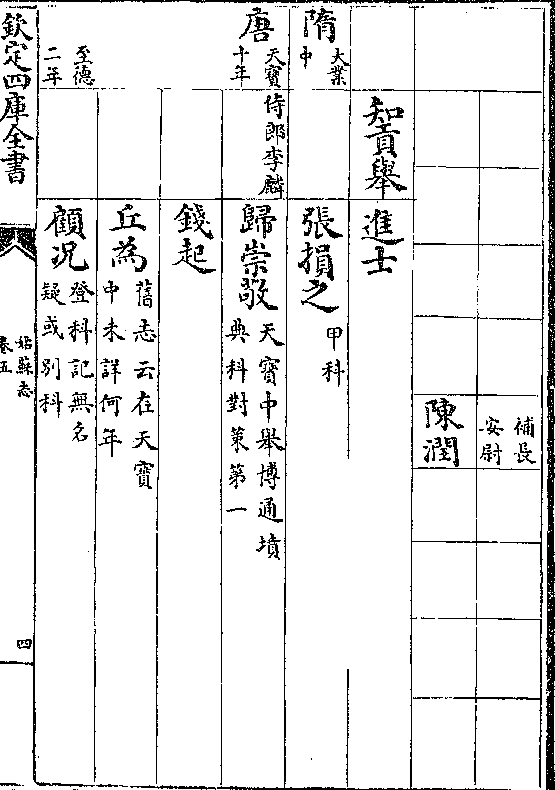 補長
安尉
陳潤
知貢舉
進士
隋
大業
中
張損之
甲科
唐
天寶
十年
侍郎李麟
歸崇敬
天寶中舉博通墳
典科對策第一
錢起
丘為
舊志云在天寶
中未詳何年
至德
二年
顧况
登科記無名
疑或別科
欽定四庫全書
姑蘇志
卷五
四